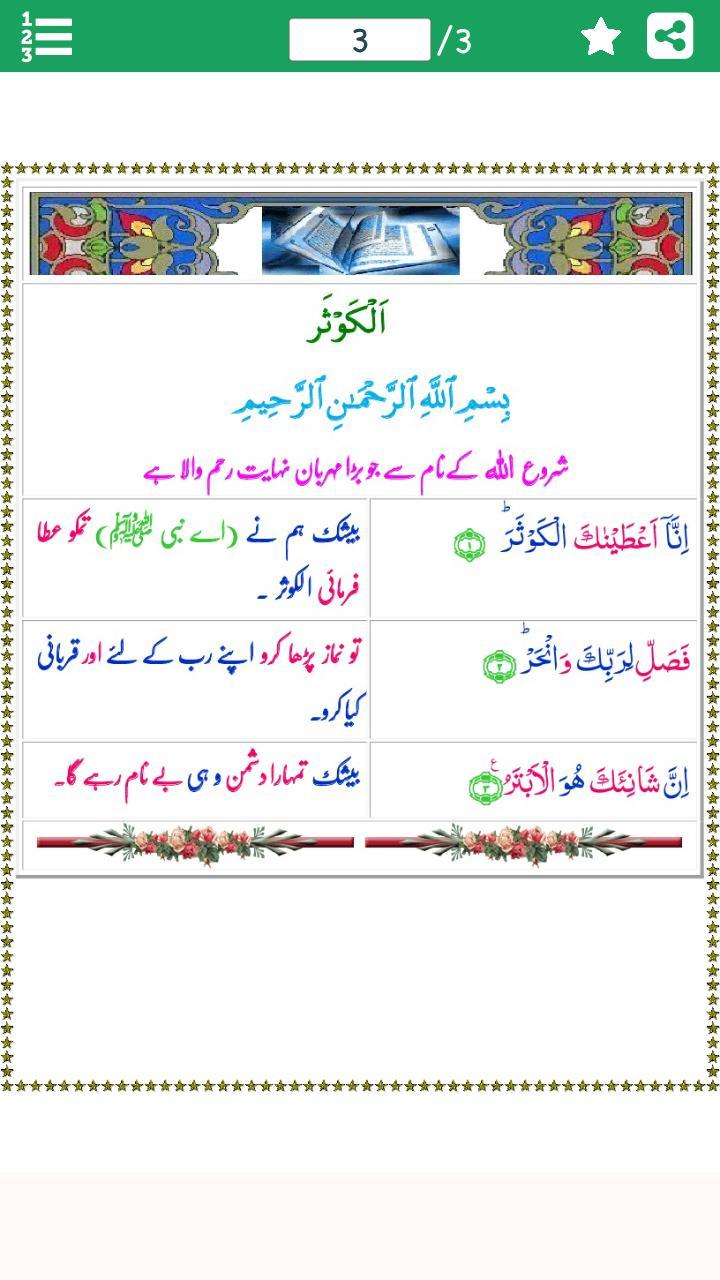 1
2
3
3 /3
اَلْكَوْثَر
بِسْمِ ٱللَّهِ ٱلرَّحْمَٰنِ ٱلرَّحِيمِ
شروع اللہ کے نام سے جو بڑا مہربان نہایت رحم والا ہے
اِنَّاۤ اَعْطَيْنٰكَ الْكَوْثَرَ ؕ ﴿۱﴾
بیشک ہم نے (اے نبی ﷺ) تمکو عطا
فرمائی الکوثر ۔
فَصَلِّ لِرَبِّكَ وَانْحَرْ ؕ ﴿۲﴾
تو نماز پڑھا کرو اپنے رب کے لئے اور قربانی
کیا کرو۔
اِنَّ شَانِئَكَ هُوَ الْاَبْتَرُ ﴿۳﴾ ع
بیشک تمہارا دشمن وہی بے نام رہے گا۔